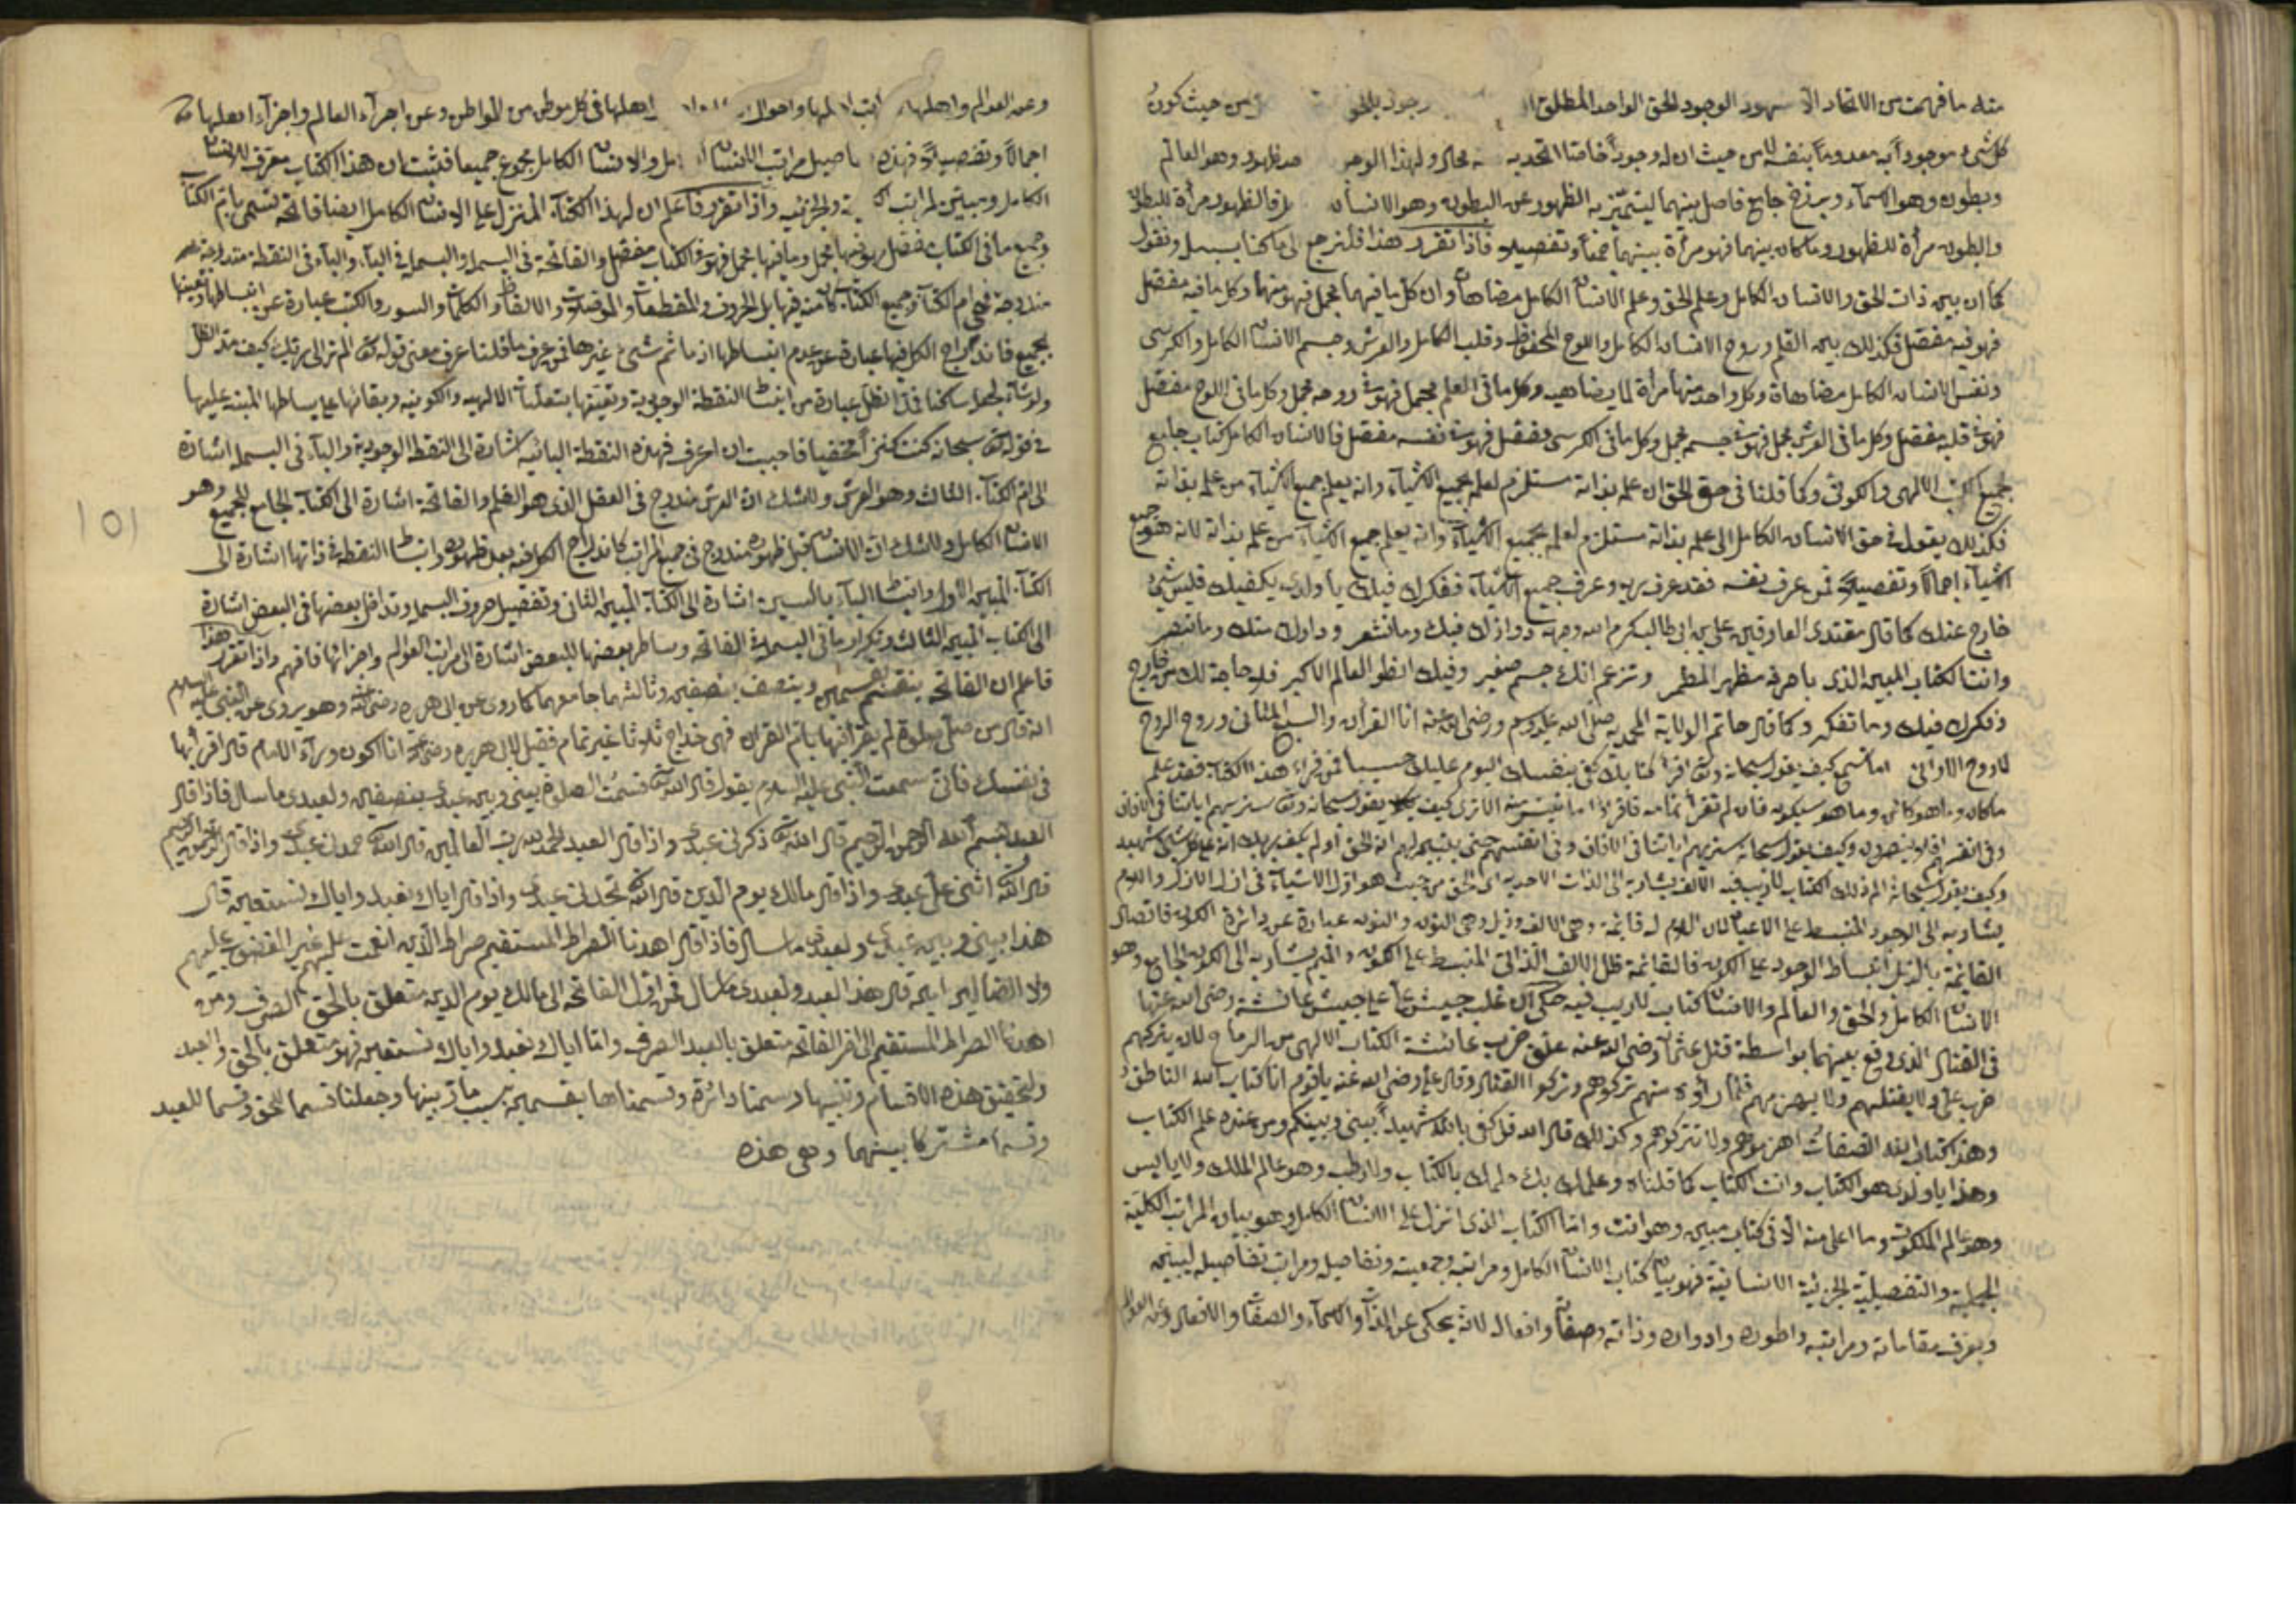 منه ما فهمت من الاتحاد الا شهود الوجود الحق الواحد المطلق وجود بالحق من حيث كون
كل شيء موجودا به معدوما بنفسه لا من حيث ان له وجودا خاصا اتحد به محال ولهذا الوجود ظهور وهو العالم
وبطون وهو الاسماء وبرزخ جامع فاصل بينهما ليتميز به الظهور عن البطون وهو الانسان فالظهور مرآة للبطون
والبطون مرآة للظهور وما كان بينهما فهو مرآة بينهما جمعا وتفصيلا فاذا تقرر هذا فلنرجع الى ما كنا بسبيله ونقول
كما ان بين ذات الحق والانسان الكامل وعلم الحق وعلم الانسان الكامل مضاهاة وان كل ما فيهما مجمل فهو منهما وكل ما فيه مفصل
فهو فيه مفصل فكذلك بين القلم وروح الانسان الكامل واللوح المحفوظ وقلب الكامل والعرش وجسم الانسان الكامل والكرسي
ونفس الانسان الكامل مضاهاة وكل واحد منها مرآة لما يضاهيه وكل ما في القلم مجمل فهو في روحه مجمل وكل ما في اللوح مفصل
فهو في قلبه مفصل وكل ما في العرش مجمل فهو في جسمه مجمل وكل ما في الكرسي مفصل فهو في نفسه مفصل فالانسان الكامل كتاب جامع
لجميع الكتب الالهي والكوني وكما قلنا في حق الحق ان علمه بذاته مستلزم لعلمه بجميع الاشياء وانه يعلم جميع الاشياء من علمه بذاته
فكذلك يقول في حق الانسان الكامل الى علمه بذاته مستلزم لعلمه بجميع الاشياء وانه يعلم جميع الاشياء من علمه بذاته لانه هو جميع
الاشياء اجمالا وتفصيلا فمن عرف نفسه فقد عرف ربه وعرف جميع الاشياء ففكرك فيك يا ولدي يكفيك فليس شيء
خارج عنك كما قال مقتدى العارفين علي بن ابي طالب كرم الله وجهه دواؤك فيك وما تشعر وداؤك منك وما تبصر
وانت الكتاب المبين الذي باحرفه يظهر المضمر وتزعم انك جسم صغير وفيك انطوى العالم الاكبر فلا حاجة لك من خارج
وفكرك فيك وما تفكر وكما قال خاتم الولاية المحمدية صلى الله عليه وسلم ورضي الله عنه انا القرآن والسبع المثاني وروح الروح
لا روح الاواني اما تسمع كيف يقول سبحانه وتعالى اقرأ كتابك كفى بنفسك اليوم عليك حسيبا فمن قرأ هذا الكتاب فقد علم
ما كان وما هو كائن وما هو سيكون فان لم تقرأ تمامه فاقرأ ما تيسر منه الا ترى كيف يقول سبحانه وتعالى سنريهم اياتنا في الآفاق
وفي انفسهم افلا تبصرون وكيف يقول سبحانه سنريهم اياتنا في الافاق وفي انفسهم حتى يتبين لهم انه الحق اولم يكف بربك انه على كل شيء شهيد
وكيف يقول سبحانه الم ذلك الكتاب لا ريب فيه الالف يشار به الى الذات الاحدية اى الحق من حيث هو اول الاشياء في ازل الازال واللام
يشار به الى الوجود المنبسط على الاعيان لان اللام له قائمة وهي الالف وذيل وهي النون والنون عبارة عن دائرة الكون فاتصال
القائمة بالذيل انبساط الوجود على الكون فالقائمة ظل الالف الذاتي المنبسط على الكون والميم يشار به الى الكون الجامع وهو
الانسان الكامل والحق والعالم والانسان كتاب لا ريب فيه حكي ان غلب جيش علي على جيش عائشة رضي الله عنها
في القتال الذي وقع بينهما بواسطة قتل عثمان رضي الله عنه علق حزب عائشة الكتاب الالهي من الرماح لان يتركهم
حزب علي ولا يقتلهم ولا يهزمهم فلما رأوه منهم تركوهم وتركوا القتال وقال علي رضي الله عنه يا قوم انا كتاب الله الناطق
وهذا كتاب الله الصامت اهزموهم ولا تتركوهم وكذلك قال الله قل كفى بالله شهيدا بيني وبينكم ومن عنده علم الكتاب
وهذا يا ولدي هو الكتاب وانت الكتاب كما قلناه وعلمك بك علمك بالكتاب ولا رطب وهو عالم الملك ولا يابس
وهو عالم الملكوت وما اعلى منه الا في كتاب مبين وهو انت واما الكتاب الذي انزل على الانسان الكامل وهو بيان المراتب الكلية
الجملية والتفصيلية الجزئية الانسانية فهو بيان كتاب الانسان الكامل ومراتبه وجمعيته وتفاصيله ومراتب تفاصيله ليبينه
ويعرف مقاماته ومراتبه واطواره وادواره وذاته وصفاته وافعاله لانه يحكي عن الذات والاسماء والصفات والافعال وعن العوالم
وعن العوالم واهلها واحوال اهلها في كل موطن من المواطن وعن اجزاء العالم واجزاء اهلها
اجمالا وتفصيلا فهذه تفاصيل مراتب الانسان الكامل والانسان الكامل مجموع جميعها فثبت ان هذا الكتاب معرف للانسان
الكامل ومبين لمراتبه الكلية والجزئية واذا تقرر فاعلم ان لهذا الكتاب المنزل على الانسان الكامل ايضا فاتحة تسمى بام الكتاب
وجميع ما في الكتاب مفصل فهو فيها مجمل وما فيها مجمل فهو في الكتاب مفصل والفاتحة في البسملة والبسملة في الباء والباء في النقطة مندرجة
مندرجة فهي ام الكتاب وجميع الكتاب كائنة فيها بل الحروف والمقطعات والموصلات والالفاظ والكلمات والسور والكتب عبارة عن انبساطها وتعينها
بجميع فاندراج الكل فيها عبارة عن عدم انبساطها اذ ما ثم شيء غيرها فمن عرف ما قلنا عرف معنى قوله تعالى الم تر الى ربك كيف مد الظل
ولو شاء لجعله ساكنا فمد الظل عبارة من انبساط النقطة الوجودية وتعينها بتعينات الالهية والكونية وبقائها على بساطها المبنية عليها
في قوله تعالى سبحانه كنت كنزا مخفيا فاحببت ان اعرف فهذه النقطة البائية اشارة الى النقطة الوجودية والباء في البسملة اشارة
الى ام الكتاب الثالث وهو العرش ولا شك ان العرش مندرج في العقل الذي هو القلم والفاتحة اشارة الى الكتاب الجامع للجميع وهو
الانسان الكامل ولا شك ان الانسان قبل ظهوره مندرج في جميع المراتب كاندراج الكل فيه بعد ظهوره وانبساط النقطة في ذاتها اشارة الى
الكتاب المبين الاول وانبساط الباء بالسين اشارة الى الكتاب المبين الثاني وتفصيل حروف البسملة وتداخل بعضها في البعض اشارة
الى الكتاب المبين الثالث وتكرار ما في البسملة في الفاتحة وتناظر بعضها للبعض اشارة الى مراتب العوالم واجزائها فافهم واذا تقرر هذا
فاعلم ان الفاتحة بقسمين وينصف بنصفين وثالثهما جامعهما كما روي عن ابي هريرة رضي الله عنه وهو يروى عن النبي عليه السلام
انه قال من صلى صلوة لم يقرأ فيها بام القران فهي خداج ثلاثا غير تمام فقيل لابي هريرة رضي الله عنه انا نكون وراء الامام قال اقرأ بها
في نفسك فاني سمعت النبي عليه السلام يقول قال الله تعالى قسمت الصلوة بيني وبين عبدي بنصفين ولعبدي ما سال فاذا قال
العبد بسم الله الرحمن الرحيم قال الله تعالى ذكرني عبدي واذا قال العبد الحمد لله رب العالمين قال الله تعالى حمدني عبدي واذا قال الرحمن الرحيم
قال الله تعالى اثنى علي عبدي واذا قال مالك يوم الدين قال الله تعالى مجدني عبدي واذا قال اياك نعبد واياك نستعين قال
هذا بيني وبين عبدي ولعبدي ما سال فاذا قال اهدنا الصراط المستقيم صراط الذين انعمت عليهم غير المغضوب عليهم
ولا الضالين قال هذا لعبدي ولعبدي ما سال فمن اول الفاتحة الى مالك يوم الدين متعلق بالحق الصرف ومن
اهدنا الصراط المستقيم الى اخر الفاتحة متعلق بالعبد الصرف واما اياك نعبد واياك نستعين فهو متعلق بالحق والعبد
ولتحقيق هذه الاقسام وتبينها رسمنا دائرة وقسمناها بقسمين وجعلنا قسما للحق وقسما للعبد
وقسما مشتركا بينهما وهي هذه
101